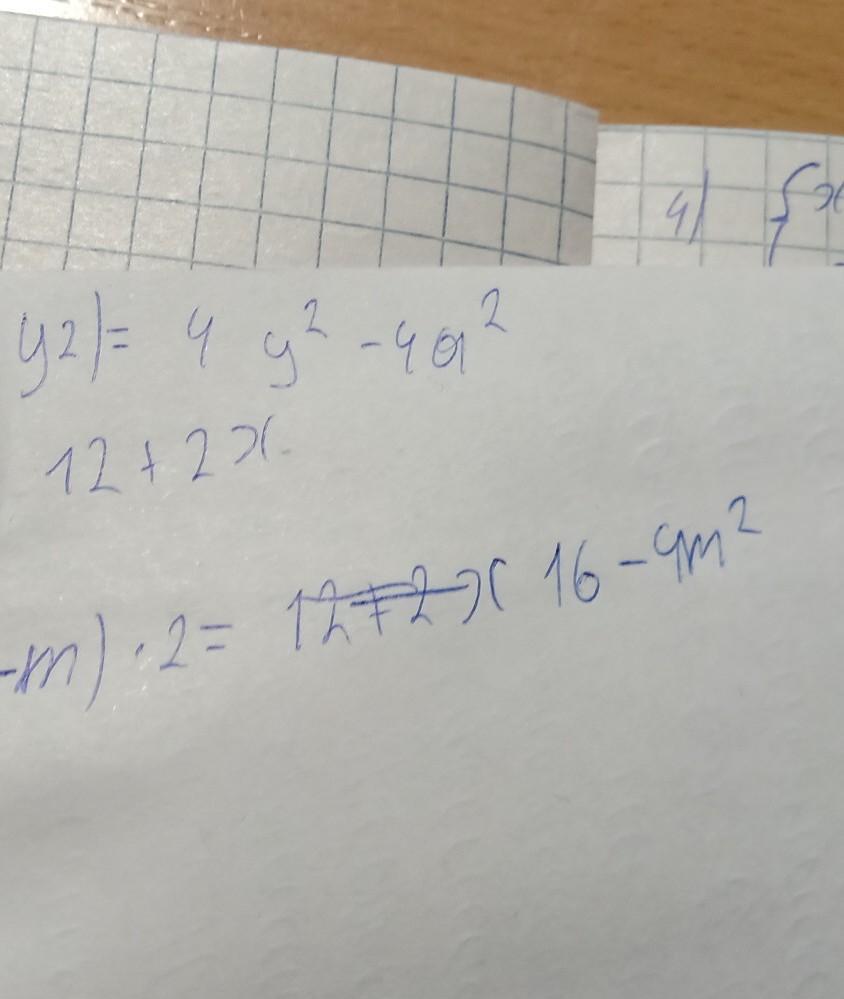 4) { x
y2)= 4 y² -4a²
12+2x
-m)·2= 12+2x 16-4m²